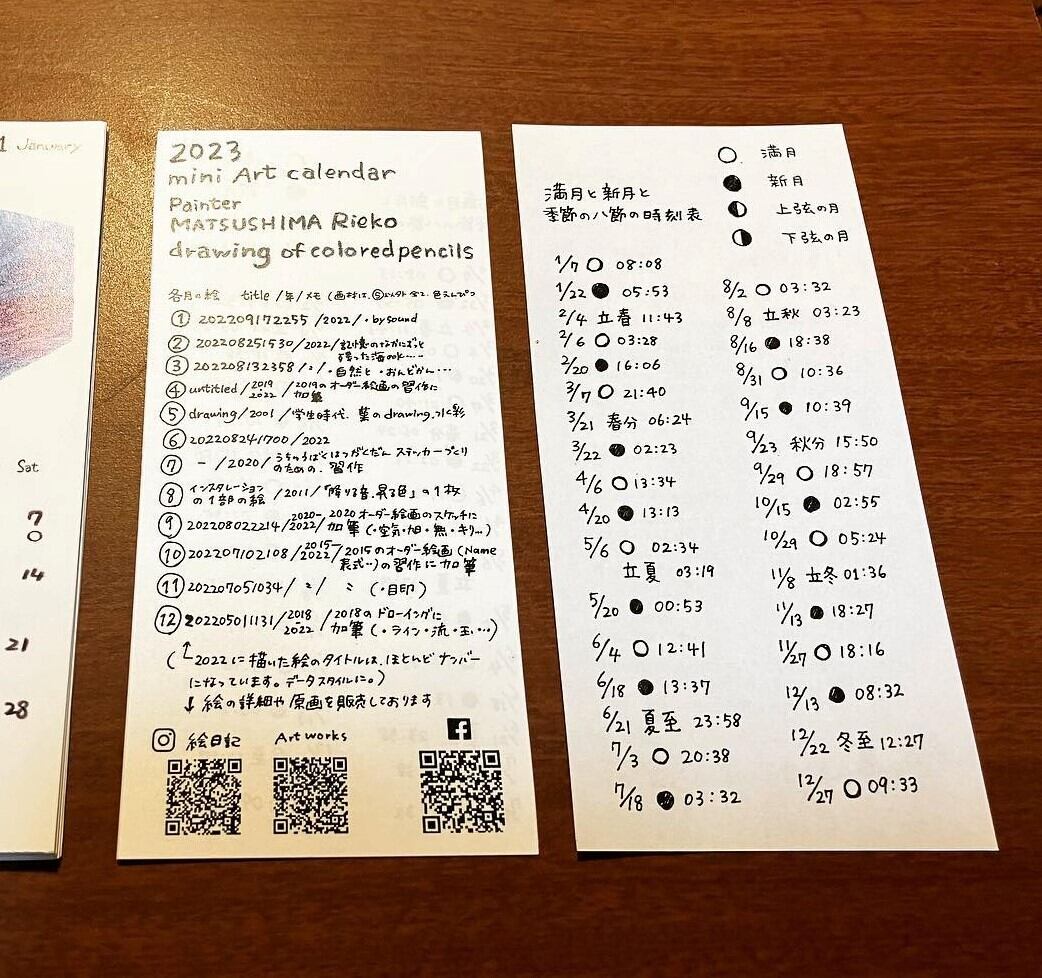 1 January
Sat
7
14
21
28
2023
mini Art calendar
Painter
MATSUSHIMA Rieko
drawing of colored pencils
各月の絵 title /年/メモ (画材は、⑤以外全て、色えんぴつ
① 202209172255 /2022/・by sound
② 202208251530/2022/記憶のなかにずっと
残った海の水……
③ 202208132358/〃/・自然と・おんどかん…
④ untitled/2019 2022/2019のオーダー絵画の習作に
加筆
⑤ drawing/2001/学生時代、葉のdrawing、水彩
⑥ 202208241700/2022
⑦ - /2020/うちゅうばくはつがくだん ステッカーづくり
のための、習作
⑧ インスタレーション
の1部の絵 /2011/「降りる音、昇る色」の1枚
⑨ 202208022214/2020-2022/2020オーダー絵画のスケッチに
加筆(・空気・旭・無・キリ…)
⑩ 202207102108/2015-2022/2015のオーダー絵画(Name
表式…)の習作に加筆
⑪ 202207051034/〃/〃(・目印)
⑫ 202205011131/2018-2022/2018のドローイングに
加筆(・ライン・流・玉、…)
(↑2022に描いた絵のタイトルは、ほとんどナンバー
になっています。データスタイルに。)
↓絵の詳細や原画を販売しております
絵日記 Art works
満月と新月と
季節の八節の時刻表
○ 満月
● 新月
◐ 上弦の月
◑ 下弦の月
1/7 ○ 08:08
1/22 ● 05:53
2/4 立春 11:43
2/6 ○ 03:28
2/20 ● 16:06
3/7 ○ 21:40
3/21 春分 06:24
3/22 ● 02:23
4/6 ○ 13:34
4/20 ● 13:13
5/6 ○ 02:34
立夏 03:19
5/20 ● 00:53
6/4 ○ 12:41
6/18 ● 13:37
6/21 夏至 23:58
7/3 ○ 20:38
7/18 ● 03:32
8/2 ○ 03:32
8/8 立秋 03:23
8/16 ● 18:38
8/31 ○ 10:36
9/15 ● 10:39
9/23 秋分 15:50
9/29 ○ 18:57
10/15 ● 02:55
10/29 ○ 05:24
11/8 立冬 01:36
11/13 ● 18:27
11/27 ○ 18:16
12/13 ● 08:32
12/22 冬至 12:27
12/27 ○ 09:33